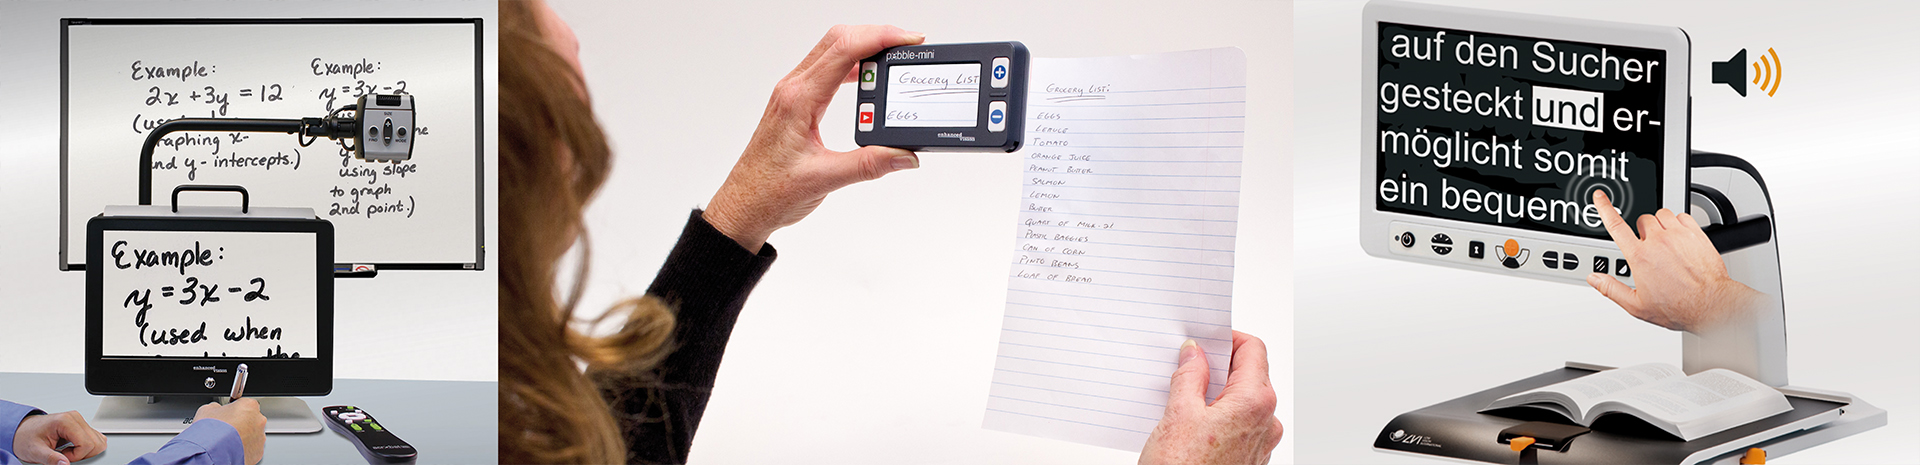 Example:
2x + 3y = 12
graphing x-
and y-intercepts.)
Example:
y = 3x - 2
the
using slope
to graph
2nd point.)
SIZE
FIND
MODE
Example:
y = 3x - 2
(used when
the
enhanced
vision
pebble-mini
GROCERY LIST
EGGS
enhanced
vision
GROCERY LIST:
EGGS
LEAUCE
TOMATO
ORANGE JUICE
PEANUT BUTTER
SALMON
LEMON
BUTTER
QUART OF MILK-2%
PLASTIC BAGGIES
CAN OF CORN
PINTO BEANS
LOAF OF BREAD
auf den Sucher
gesteckt und er-
möglicht somit
ein bequemes
LVI
LOW
VISION
INTERNATIONAL